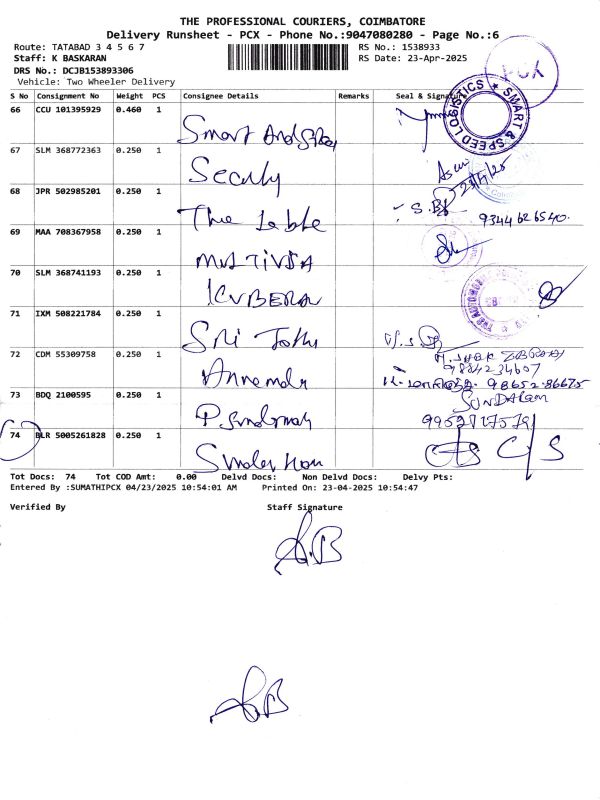 THE PROFESSIONAL COURIERS, COIMBATORE
Delivery Runsheet - PCX - Phone No.:9047080280 - Page No.:6
Route: TATABAD 3 4 5 6 7
RS No.: 1538933
Staff: K BASKARAN
RS Date: 23-Apr-2025
DRS No.: DCJB153893306
Vehicle: Two Wheeler Delivery
PCX
S No Consignment No Weight PCS Consignee Details Remarks Seal & Signature
66 CCU 101395929 0.460 1
Smart And
SMART & SPEED LOGISTICS
67 SLM 368772363 0.250 1
68 JPR 502985201 0.250 1
The
S.B
9344626540.
69 MAA 708367958 0.250 1
MULTIVISA
70 SLM 368741193 0.250 1
KUBERA
71 IXM 508221784 0.250 1
Sri
72 CDM 55309758 0.250 1
9884234607
98652.86675
73 BDQ 2100595 0.250 1
SUNDARAM
74 BLR 5005261828 0.250 1
C/S
Tot Docs: 74 Tot COD Amt: 0.00 Delvd Docs: Non Delvd Docs: Delvy Pts:
Entered By :SUMATHIPCX 04/23/2025 10:54:01 AM Printed On: 23-04-2025 10:54:47
Verified By Staff Signature